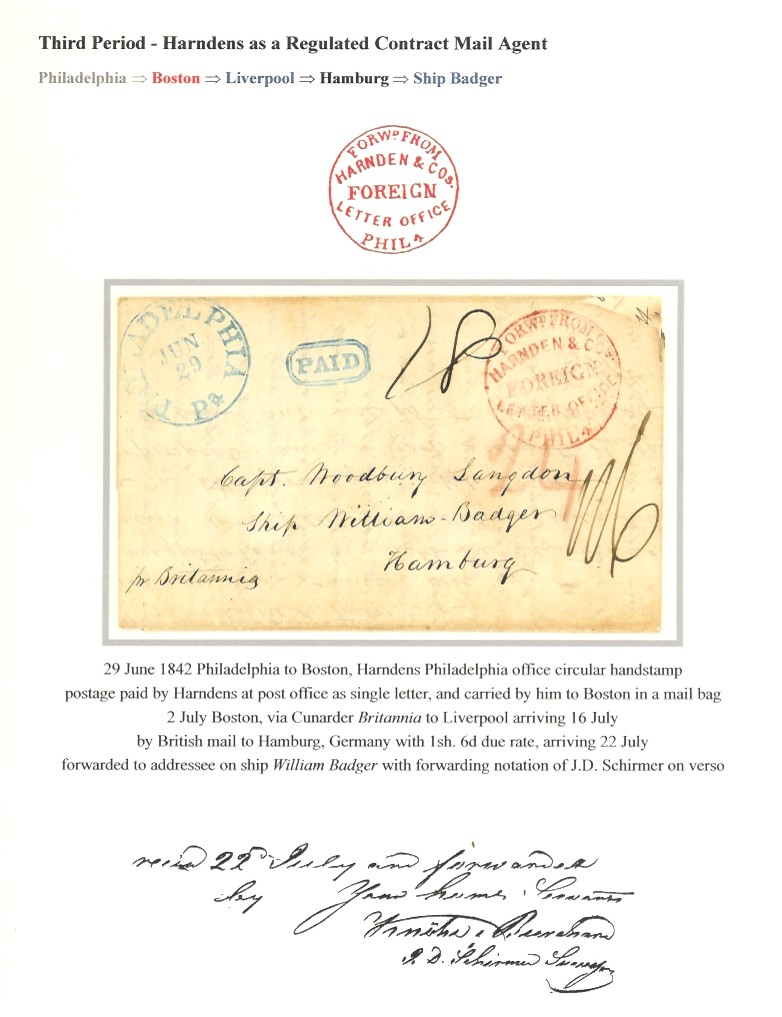 Third Period - Harndens as a Regulated Contract Mail Agent
Philadelphia ⇒ Boston ⇒ Liverpool ⇒ Hamburg ⇒ Ship Badger
FORWD FROM
HARNDEN & COS.
FOREIGN
LETTER OFFICE
PHILA
PHILADELPHIA
JUN
29
Pa
PAID
18
FORWD FROM
HARNDEN & COS.
FOREIGN
LETTER OFFICE
PHILA
Capt. Woodbury Langdon
Ship William-Badger
Hamburg
pr Britannia
29 June 1842 Philadelphia to Boston, Harndens Philadelphia office circular handstamp
postage paid by Harndens at post office as single letter, and carried by him to Boston in a mail bag
2 July Boston, via Cunarder Britannia to Liverpool arriving 16 July
by British mail to Hamburg, Germany with 1sh. 6d due rate, arriving 22 July
forwarded to addressee on ship William Badger with forwarding notation of J.D. Schirmer on verso
22d July and forwarded
by Your Servants
J. D. Schirmer